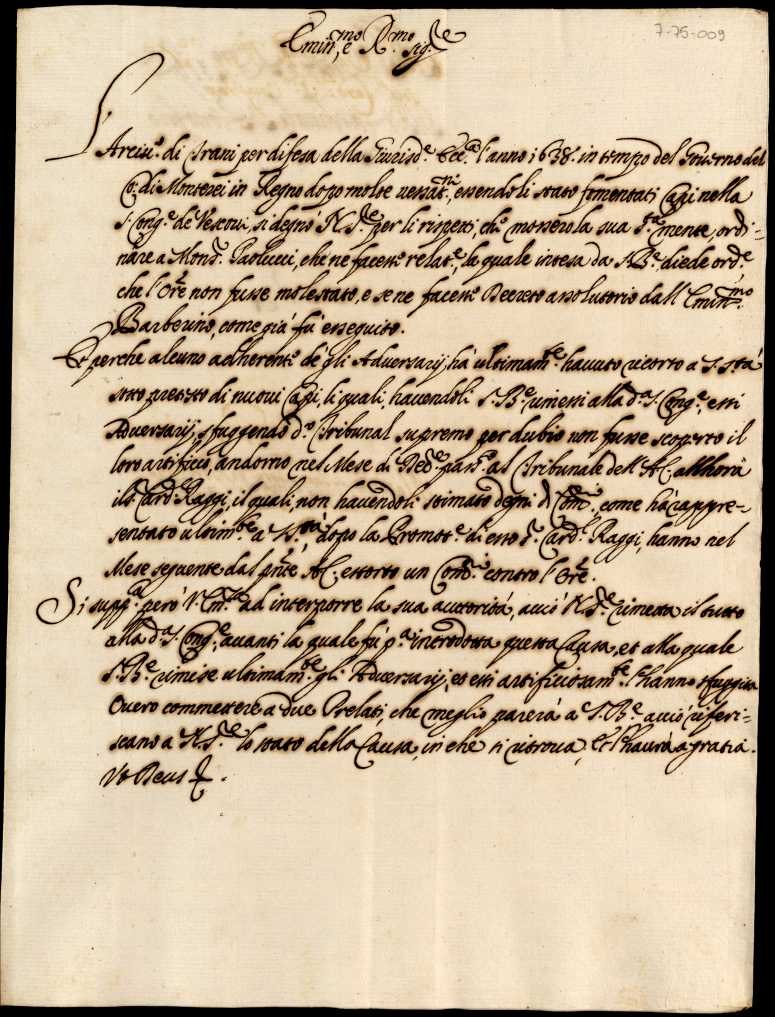 7-75-009
Emin.mo e R.mo sig.re
L'Arciu.o di Trani per difesa della Giurisd.e Ecc.a l'anno 1638. in tempo del Gouerno del
Co: di Monterei in Regno dopo molte uessat.ni, essendoli stato fomentati Capi nella
S. Cong.e de Vescoui, si degnò N. S.re per li rispetti, ch.e mossero la sua S.ta mente, ordi-
nare a Mons.r Paolucci, che ne facesse relat.e, la quale intesa da S. B.e diede ord.e
che l'Ore non fusse molestato, e se ne facesse Decreto assolutorio dall'Emin.mo
Barberino, come già fù esseguito.
Et perche alcuno adherente de gli Aduersarij, hà ultimam.te hauuto ricorso a S. S.tà
sotto pretesto di nuoui Capi, li quali, hauendoli S. B.e rimessi alla d.a S. Cong.e, essi
Aduersarij, sfuggendo d.o Tribunal supremo per dubio non fusse scoperto il
loro artificio, andorno nel Mese di Xbre pass.o al Tribunale dell'AC. allhora
il S. Card. Raggi, il quali, non hauendoli stimato degni di Com.e, come hà rappre-
sentato ultim.te a N. S.tà dopo la Promot.e di esso S. Card.l Raggi, hanno nel
Mese seguente dal pnte AC. estorto un Com.e contro l'Ore.
Si supp.ca però V. Em.za ad interporre la sua autorità, acciò N. S.re rimetta il tutto
alla d.a S. Cong.e, auanti la quale fù p.a introdotta questa Causa, et alla quale
S. B.e rimise ultimam.te gli Aduersarij, et essi artificiosam.te l'hanno sfuggita
Ouero commettere a due Prelati, che meglio parerà a S. B.e acciò riferi-
scano a N. S.re lo stato della Causa, in che si ritroua, et l'haurà a gratia.
Vt Deus &.